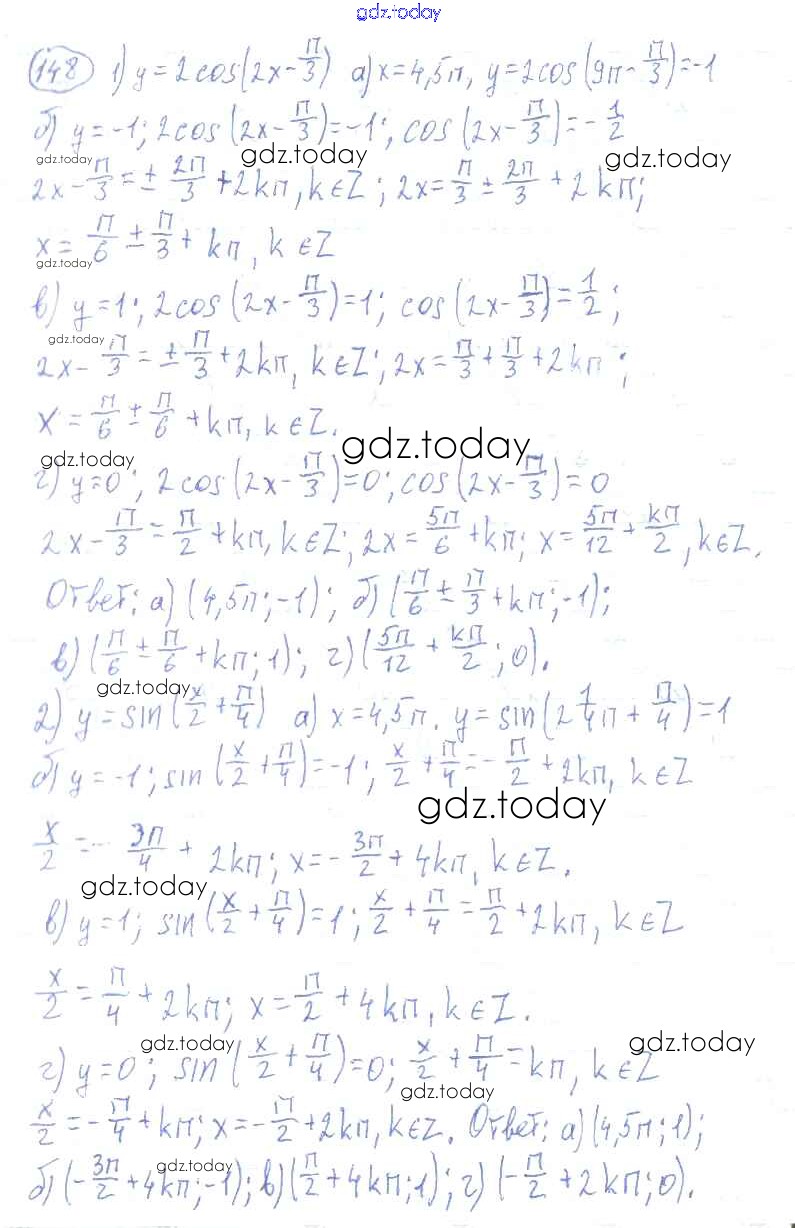 gdz.today
148 1) y = 2cos(2x - π/3) а) x = 4,5π, y = 2cos(9π - π/3) = -1
б) y = -1; 2cos(2x - π/3) = -1; cos(2x - π/3) = -1/2
gdz.today gdz.today gdz.today
2x - π/3 = ± 2π/3 + 2kπ, k ∈ Z; 2x = π/3 ± 2π/3 + 2kπ;
x = π/6 ± π/3 + kπ, k ∈ Z
gdz.today
в) y = 1; 2cos(2x - π/3) = 1; cos(2x - π/3) = 1/2;
gdz.today
2x - π/3 = ± π/3 + 2kπ, k ∈ Z; 2x = π/3 + π/3 + 2kπ;
x = π/6 ± π/6 + kπ, k ∈ Z.
gdz.today gdz.today
г) y = 0; 2cos(2x - π/3) = 0; cos(2x - π/3) = 0
2x - π/3 = π/2 + kπ, k ∈ Z; 2x = 5π/6 + kπ; x = 5π/12 + kπ/2, k ∈ Z.
Ответ: а) (4,5π; -1); б) (π/6 ± π/3 + kπ; -1);
в) (π/6 ± π/6 + kπ; 1); г) (5π/12 + kπ/2; 0).
gdz.today
2) y = sin(x/2 + π/4) а) x = 4,5π. y = sin(2 1/4 π + π/4) = 1
б) y = -1; sin(x/2 + π/4) = -1; x/2 + π/4 = -π/2 + 2kπ, k ∈ Z
gdz.today
x/2 = - 3π/4 + 2kπ; x = - 3π/2 + 4kπ, k ∈ Z.
gdz.today
в) y = 1; sin(x/2 + π/4) = 1; x/2 + π/4 = π/2 + 2kπ, k ∈ Z
x/2 = π/4 + 2kπ; x = π/2 + 4kπ, k ∈ Z.
gdz.today gdz.today
г) y = 0; sin(x/2 + π/4) = 0; x/2 + π/4 = kπ, k ∈ Z
gdz.today
x/2 = -π/4 + kπ; x = -π/2 + 2kπ, k ∈ Z. Ответ: а) (4,5π; 1);
gdz.today
б) (-3π/2 + 4kπ; -1); в) (π/2 + 4kπ; 1); г) (-π/2 + 2kπ; 0).